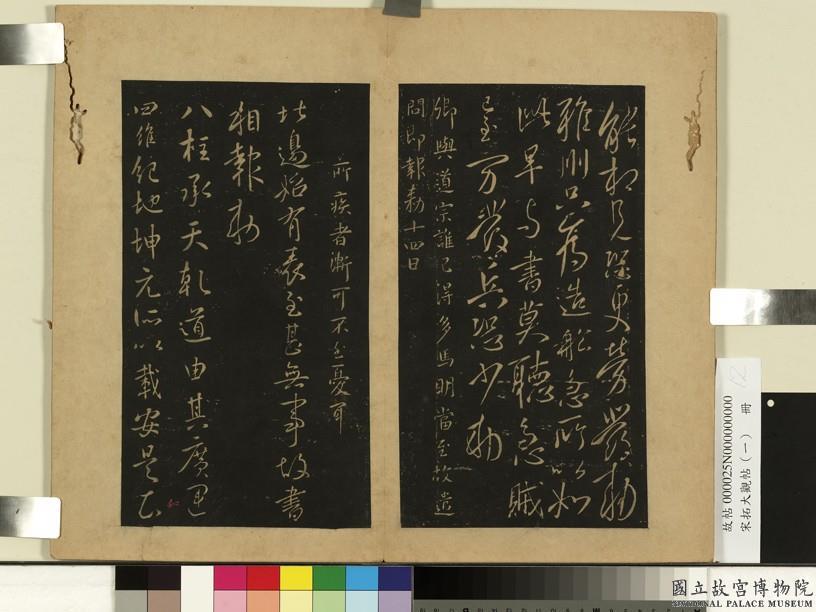 能相見鞋更勞發勅
雅州只為造船急所以如
此早與書莫聽急賊
已至可發兵恐少勅
卿與道宗誰已得多馬明當至故遣
問即報勅十四日
所疾者漸可不至憂耳
比邊始有表至甚無事故書
相報勅
八柱承天乾道由其廣運
四維紀地坤元所以載安是
故帖 000025N000000000
宋拓大觀帖(一) 冊
12
國立故宮博物院
NATIONAL PALACE MUSEUM